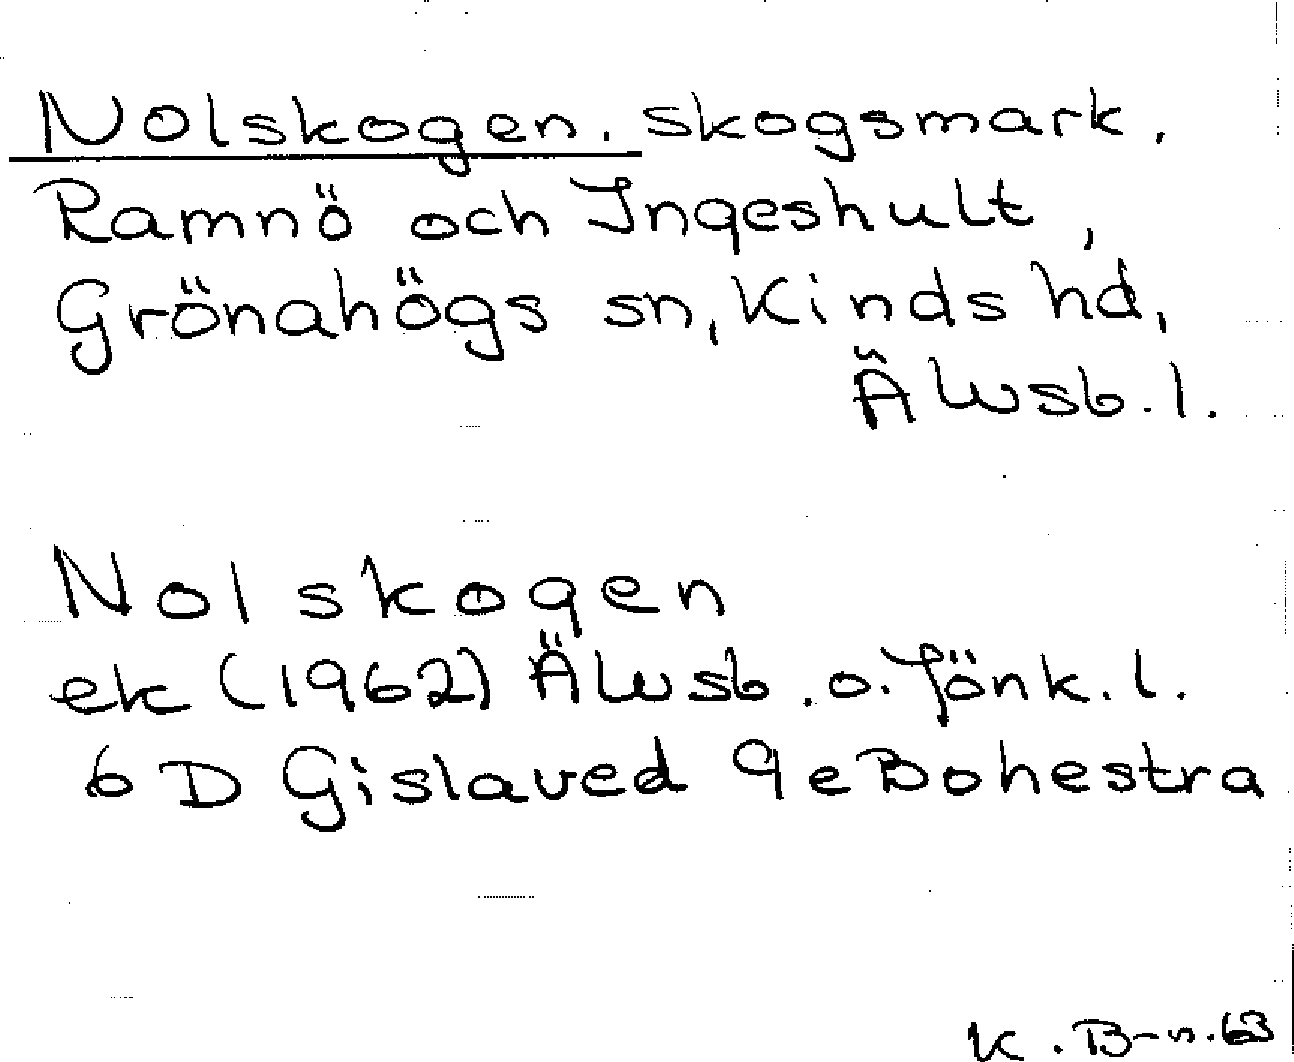 Nolskogen. skogsmark.
Ramnö och Ingeshult,
Grönahögs sn, Kinds hd,
Älvsb. l.
Nolskogen
ek (1962) Älvsb. o. Jönk. l.
6D Gislaved 9e Bohestra
K. B-n. 63